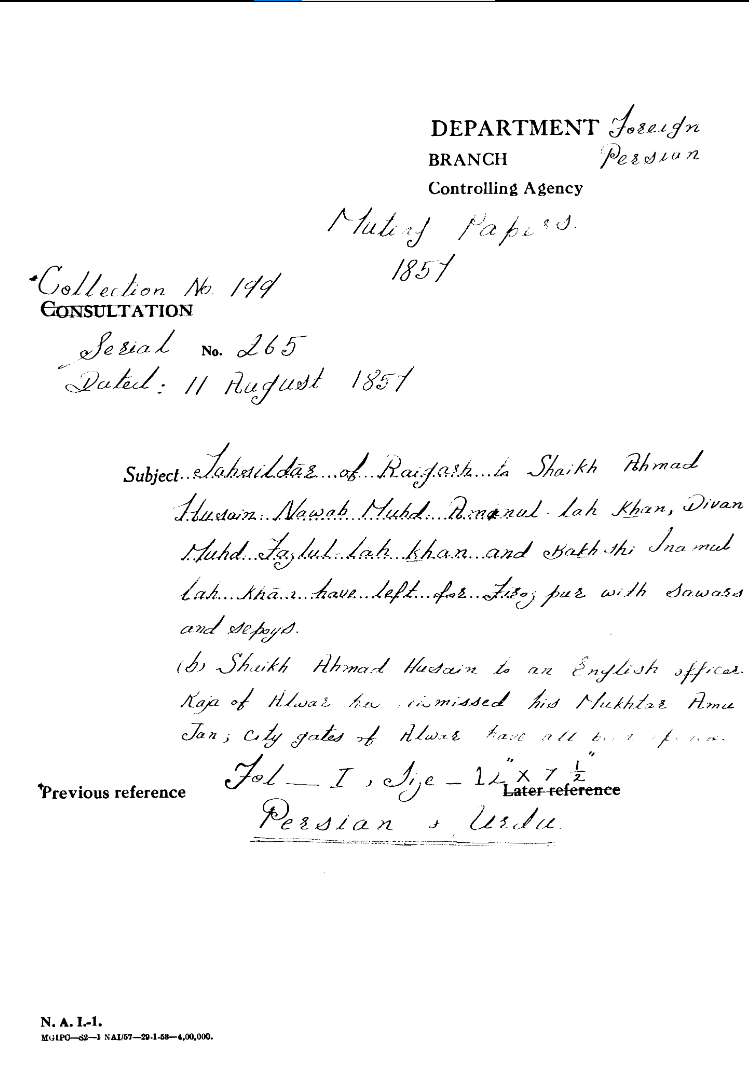 DEPARTMENT Foreign
BRANCH Persian
Controlling Agency
Mutiny Papers.
1857
*Collection No. 199
CONSULTATION
Serial No. 265
Dated: 11 August 1857
Subject Tahsildar of Raigarh to Shaikh Ahmad
Husain. Nawab Muhd. Amanul lah Khan, Divan
Muhd Fazlul lah Khan and Bakhshi Inamul
lah Khan have left for Firoz pur with sawars
and sepoys.
(b) Shaikh Ahmad Husain to an English officer.
Raja of Alwar has dismissed his Mukhtar Amu
Jan; city gates of Alwar have all
Fol — I, Size — 12" x 7 1/2"
*Previous reference
Later reference
Persian & Urdu.
N. A. I.-1.
MGIPO—S2—1 NAI/57—29-1-58—4,00,000.